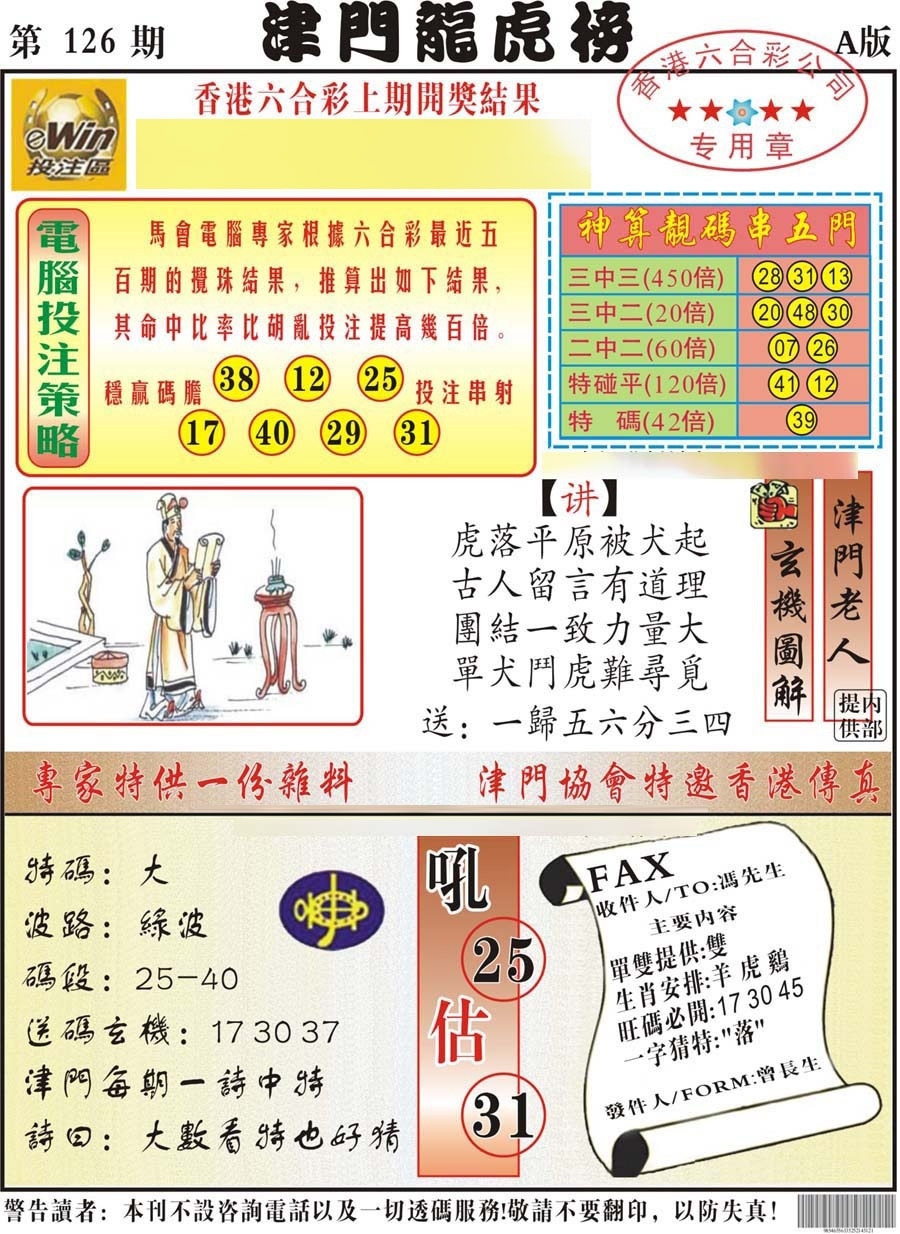 第 126 期
津門龍虎榜
A版
eWin
投注區
香港六合彩上期開獎結果
香港六合彩公司
专用章
電腦投注策略
馬會電腦專家根據六合彩最近五
百期的攪珠結果，推算出如下結果，
其命中比率比胡亂投注提高幾百倍。
穩贏碼膽 38 12 25 投注串射
17 40 29 31
神算靚碼串五門
三中三(450倍) 28 31 13
三中二(20倍) 20 48 30
二中二(60倍) 07 26
特碰平(120倍) 41 12
特 碼(42倍) 39
【讲】
虎落平原被犬起
古人留言有道理
團結一致力量大
單犬鬥虎難尋覓
送：一歸五六分三四
玄機圖解
津門老人
内部提供
專家特供一份雜料
津門協會特邀香港傳真
特碼：大
波路：綠波
碼段：25-40
送碼玄機：17 30 37
津門每期一詩中特
詩曰：大數看特也好猜
吼
25
估
31
FAX
收件人/TO:馮先生
主要内容
單雙提供:雙
生肖安排:羊 虎 鷄
旺碼必開:17 30 45
一字猜特:"落"
發件人/FORM:曾長生
警告讀者：本刊不設咨詢電話以及一切透碼服務!敬請不要翻印，以防失真！